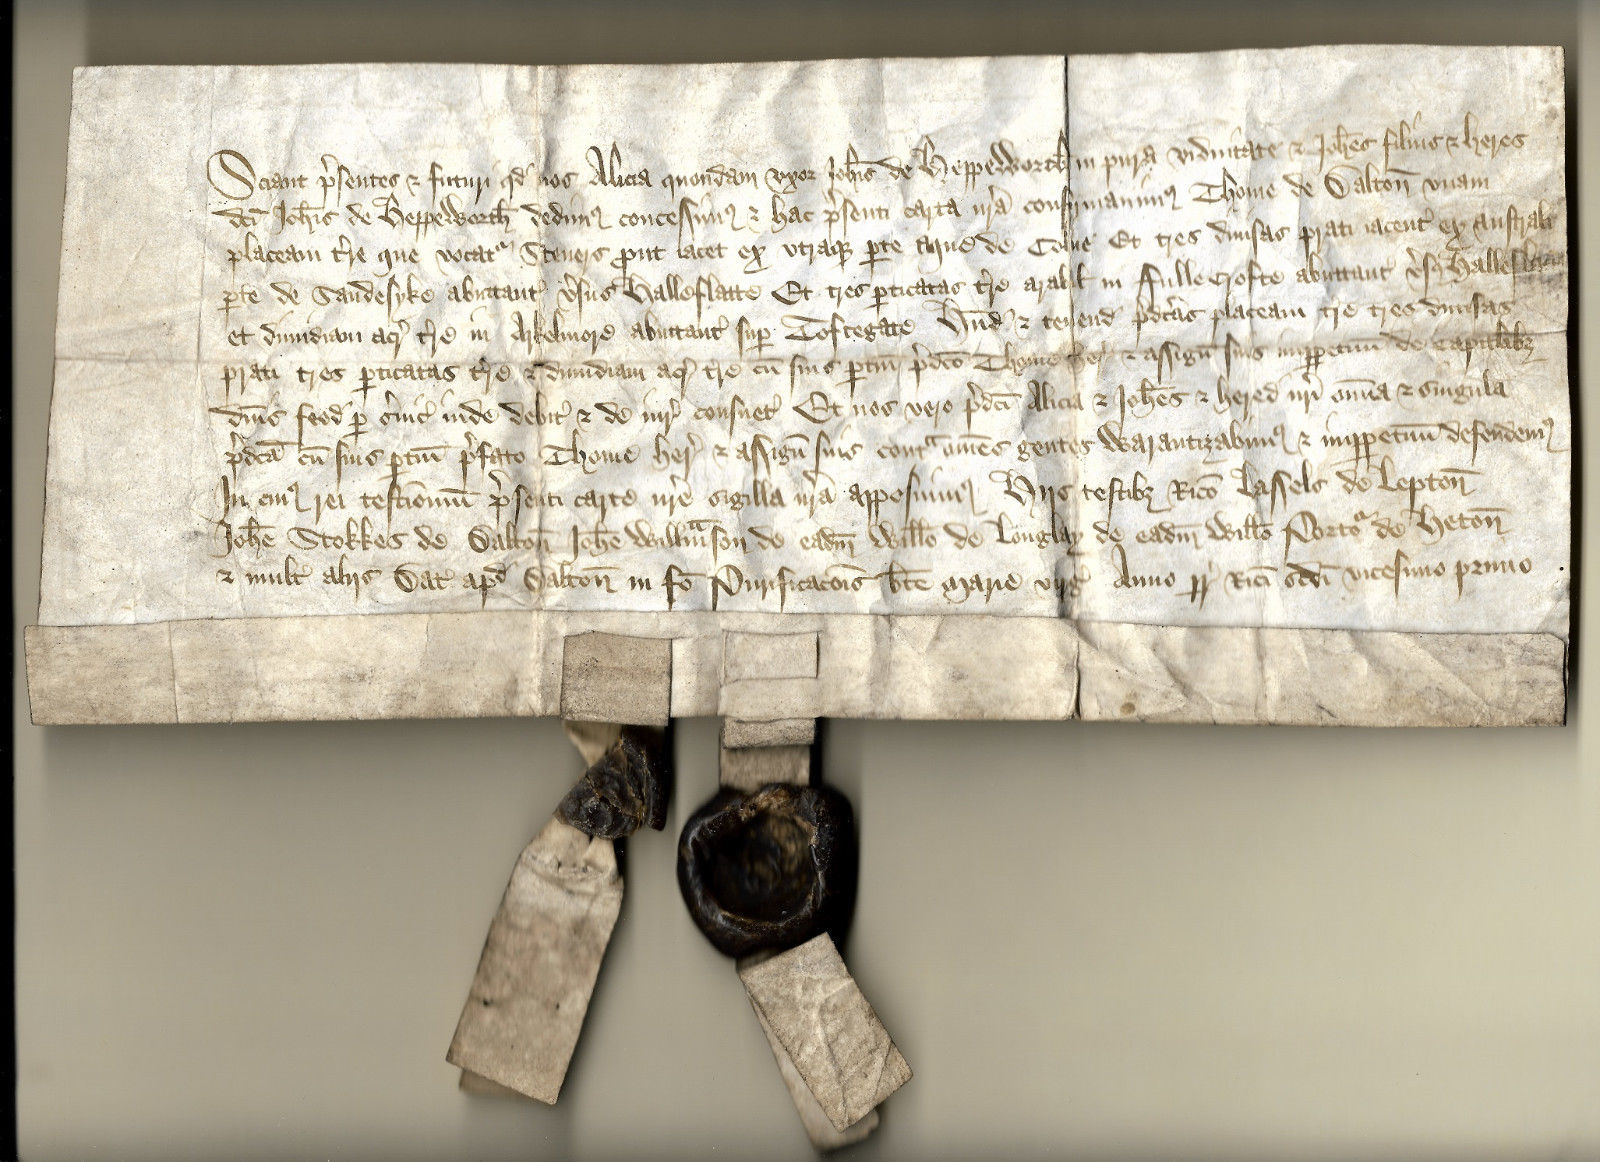 Sciant p̄sentes ⁊ futuri qd̄ nos Alicia quondam vxor Joh̄is de Heppeworth in pura viduitate ⁊ Joh̄es filius ⁊ heres
dc̄i Joh̄is de Heppeworth dedimꝰ concessimꝰ ⁊ hac p̄senti carta nr̄a confirmauimꝰ Thome de Dalton̄ vnam
placeam t̄re que vocat᷑ Steners ꝓut iacet ex vtraqꝫ ꝑte aque de Colne Et tres diuisas prati iacent̄ ex australi
ꝑte de Sandesyke abuttant̄ v̄sus Halleflatte Et tres ꝑticatas t̄re arabil̄ in ffullecrofte abuttant̄ v̄sꝰ Halleflatte
et dimidiam acr̄ t̄re in Arkelmore abuttant̄ suꝑ Toftegate Hend̄ ⁊ tenend̄ p̄dc̄as placeam t̄re tres diuisas
prati tres ꝑticatas t̄re ⁊ dimidiam acr̄ t̄re cū suis ꝑtin̄ p̄dc̄o Thome her̄ ⁊ assign̄ suis imꝑpetuū de capitlibꝫ
dn̄is feod̄ ꝑ s̄uic̄ inde debit̄ ⁊ de iur̄ consuet̄ Et nos vero p̄dc̄i Alicia ⁊ Joh̄es ⁊ hered̄ nr̄i om̄ia ⁊ singula
p̄dc̄a cū suis ꝑtin̄ p̄fato Thome her̄ ⁊ assign̄ suis contᵃ om̄es gentes warantizabimꝰ ⁊ imꝑpetuū defendemꝰ
In cuiꝰ rei testimoniū p̄senti carte nr̄e sigilla nr̄a apposuimꝰ Hijs testibꝫ Ric̄o Lassels de Lepton̄
Joh̄e Stokkes de Dalton̄ Joh̄e Willmᵃson de ead̄m Will̄o de Longlay de ead̄m Will̄o Norton̄ de Heton̄
⁊ mult̄ alijs Dat̄ apd̄ Dalton̄ in fō Purificac̄ois bt̄e Marie virḡ Anno rr̄ Ric̄i sc̄di vicesimo primo